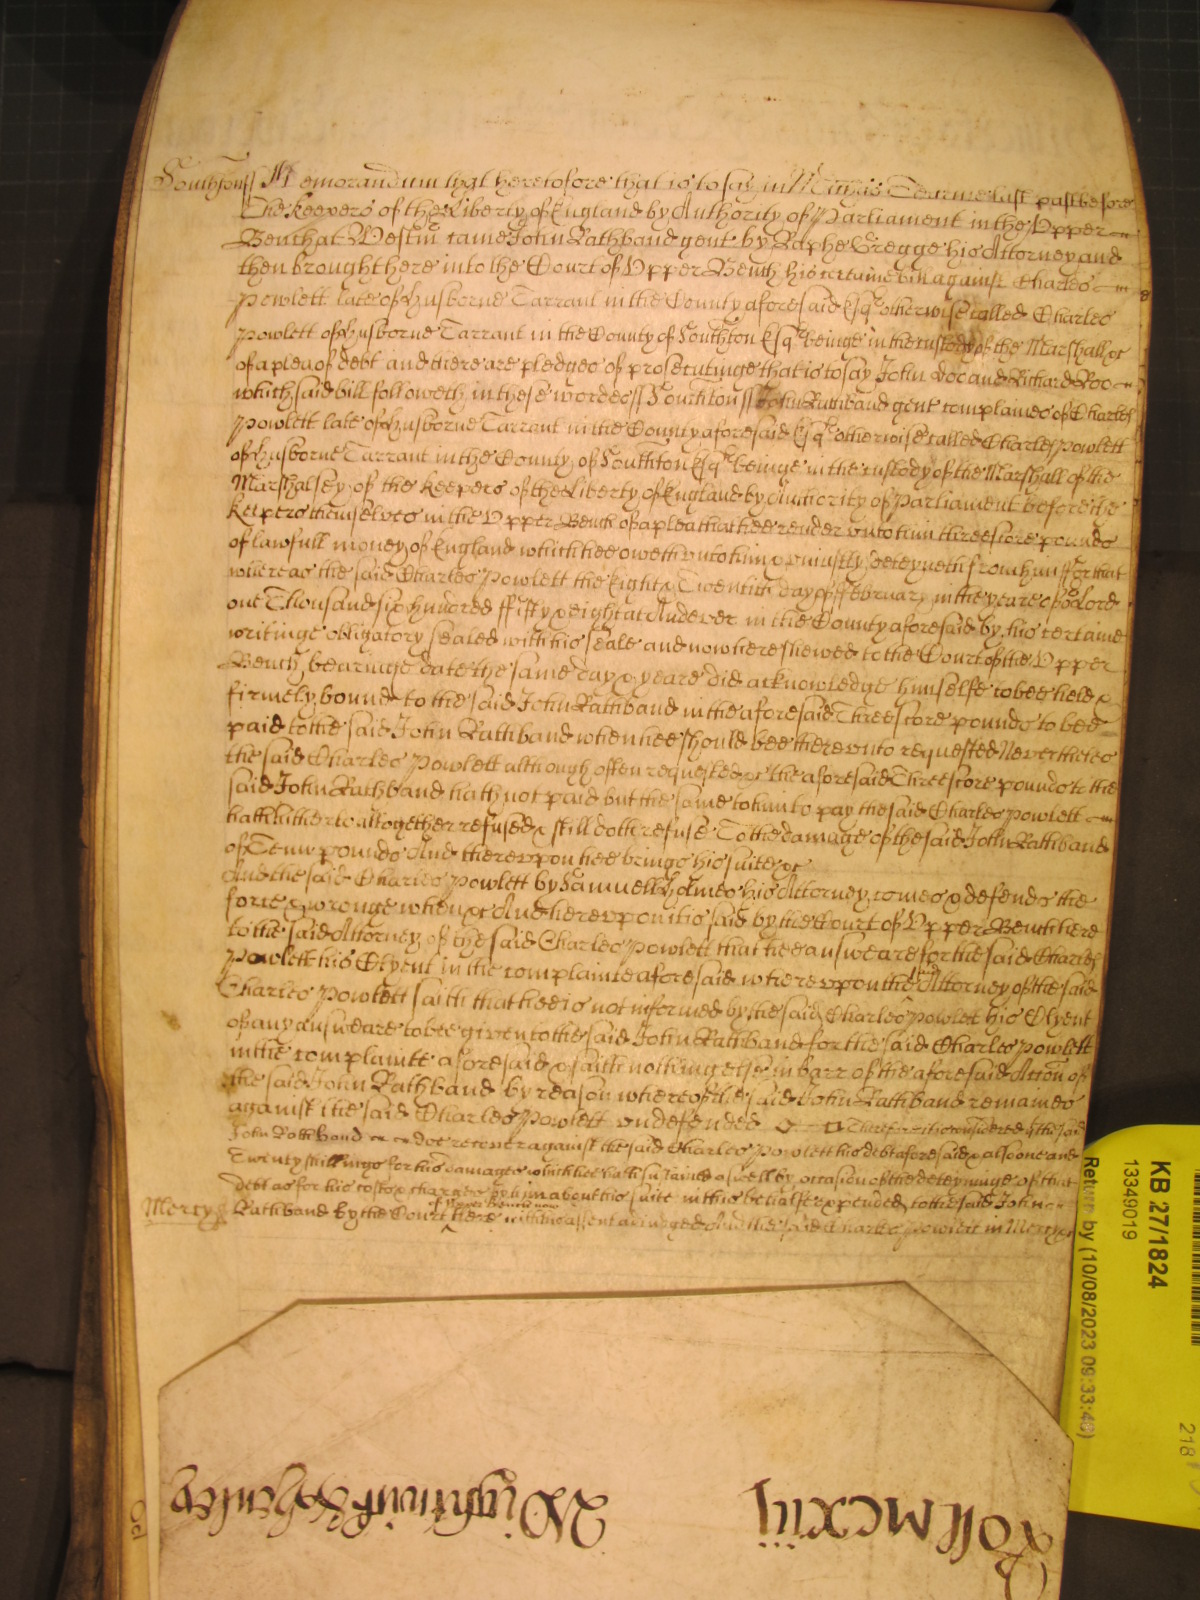 Southton ss Memorandum that heretofore that is to say in Tearme last past before
the Keepers of the Liberty of England by Authority of Parliament in the Upper
Bench at Westm came John Rathband gent by Raphe Gregge his Attorney and
then brought here into the Court of Upper Bench his certaine bill against Charles
Powlett late of Husborne Tarrant in the County aforesaid Esqr otherwise called Charles
Powlett of Husborne Tarrant in the County of Southton Esqr beinge in the custody of the Marshall &c
of a plea of debt and there are pledges of prosecutinge that is to say John Doe and Richard Roe
which said bill followeth in these wordes ss Southton ss John Rathband gent complaines of Charles
Powlett late of Husborne Tarrant in the County aforesaid Esqr otherwise called Charles Powlett
of Husborne Tarrant in the County of Southton Esqr beinge in the custody of the Marshall of the
Marshalsey of the Keepers of the Liberty of England by Authority of Parliament before the
Keepers themselves in the Upper Bench of a plea that hee render unto him threescore pounds
of lawfull money of England which hee oweth unto him & uniustly deteyneth from him ffor that
whereas the said Charles Powlett the Eight & Twentith day of ffebruary in the yeare of or Lord
one Thousand six hundred ffifty & eight at Andever in the County aforesaid by his certaine
writinge obligatory sealed with his seale and now here shewed to the Court of the Upper
Bench bearinge date the same day & yeare did acknowledge himselfe to bee held &
firmely bound to the said John Rathband in the aforesaid Threescore pounds to bee
paid to the said John Rathband when hee should bee thereunto requested Neverthelес
the said Charles Powlett although often requested &c the aforesaid Threescore pounds to the
said John Rathband hath not paid but the same to him to pay the said Charles Powlett
hath hitherto altogether refused & still doth refuse To the damage of the said John Rathband
of Tenn pounds And thereuppon hee brings his suite &c
And the said Charles Powlett by Samuell Holmes his Attorney comes & defends the
force & wronge when &c And hereuppon it is said by the Court of Upper Bench here
to the said Attorney of the said Charles Powlett that hee answeare for the said Charles
Powlett his Clyent in the complainte aforesaid whereuppon the Attorney of the said
Charles Powlett saith that hee is not informed by the said Charles Powlett his Clyent
of any answeare to bee given to the said John Rathband for the said Charles Powlett
in the complainte aforesaid & saith nothing else in barr of the aforesaid Action of
the said John Rathband by reason whereof the said John Rathband remaines
against the said Charles Powlett undefended Therefore it is considered that the said
John Rathband doe recover against the said Charles Powlett his debt aforesaid & alsoe one and
Twenty shillings for his damages which hee hath sustained aswell by occasion of the deteyninge of that
debt as for his costs & charges by him about his suite in this behalfe expended to the said John
Mercy Rathband by the Court of Upper Bench now here with his assent adiudged And the said Charles Powlett in Mercy &c
Roll mcxiiij
Wightwick & Henley
KB 27/1824
13349019
Return by (10/08/2023 09:33:46)